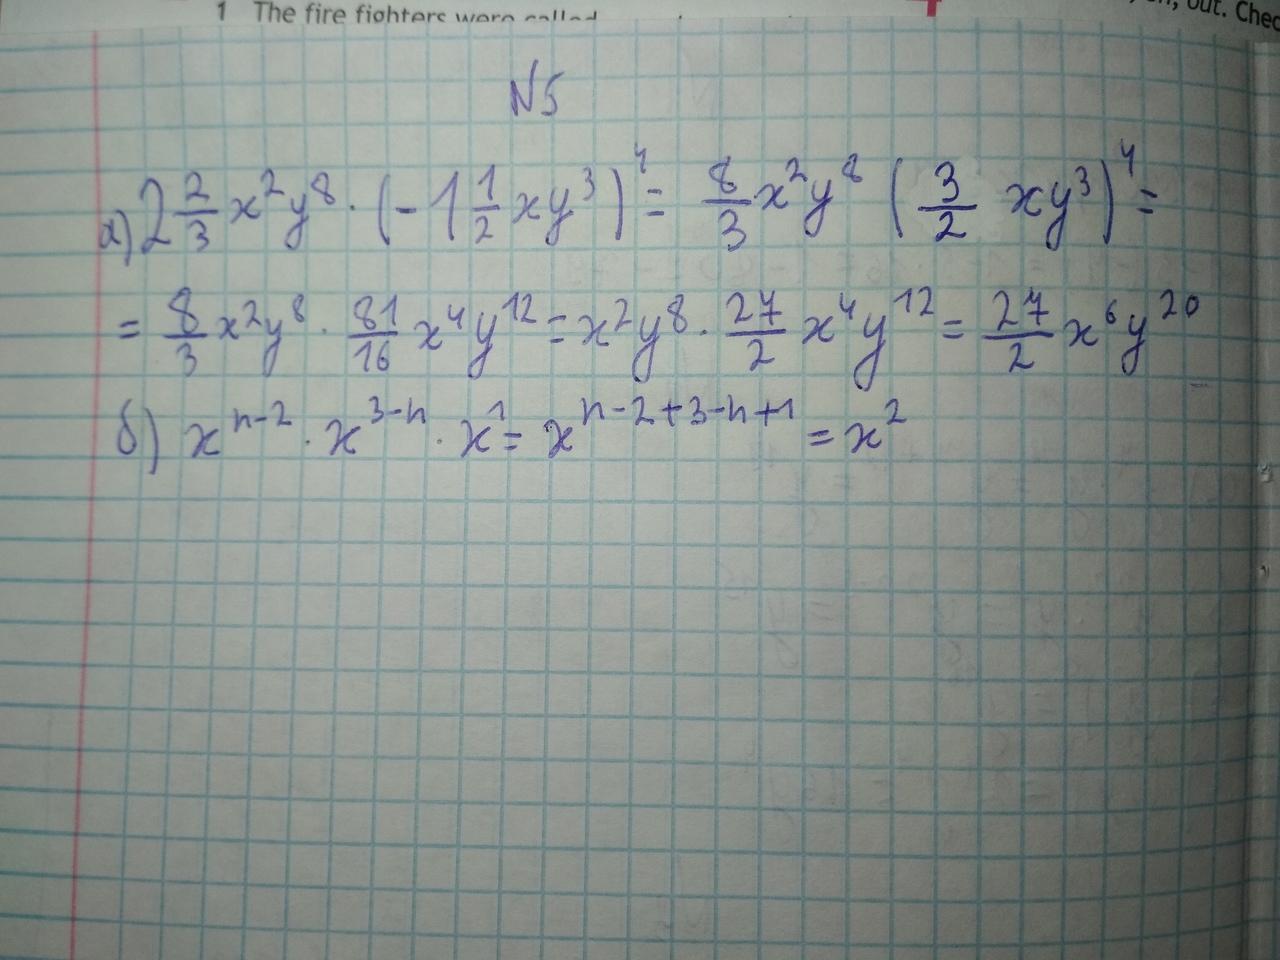 1 The fire fighters were called
out. Chec
N5
а) 2 2/3 x²y⁸ · (-1 1/2 xy³)⁴ = 8/3 x²y⁸ (3/2 xy³)⁴ =
= 8/3 x²y⁸ · 81/16 x⁴y¹² = x²y⁸ · 27/2 x⁴y¹² = 27/2 x⁶y²⁰
б) xⁿ⁻² · x³⁻ⁿ · x¹ = xⁿ⁻²⁺³⁻ⁿ⁺¹ = x²